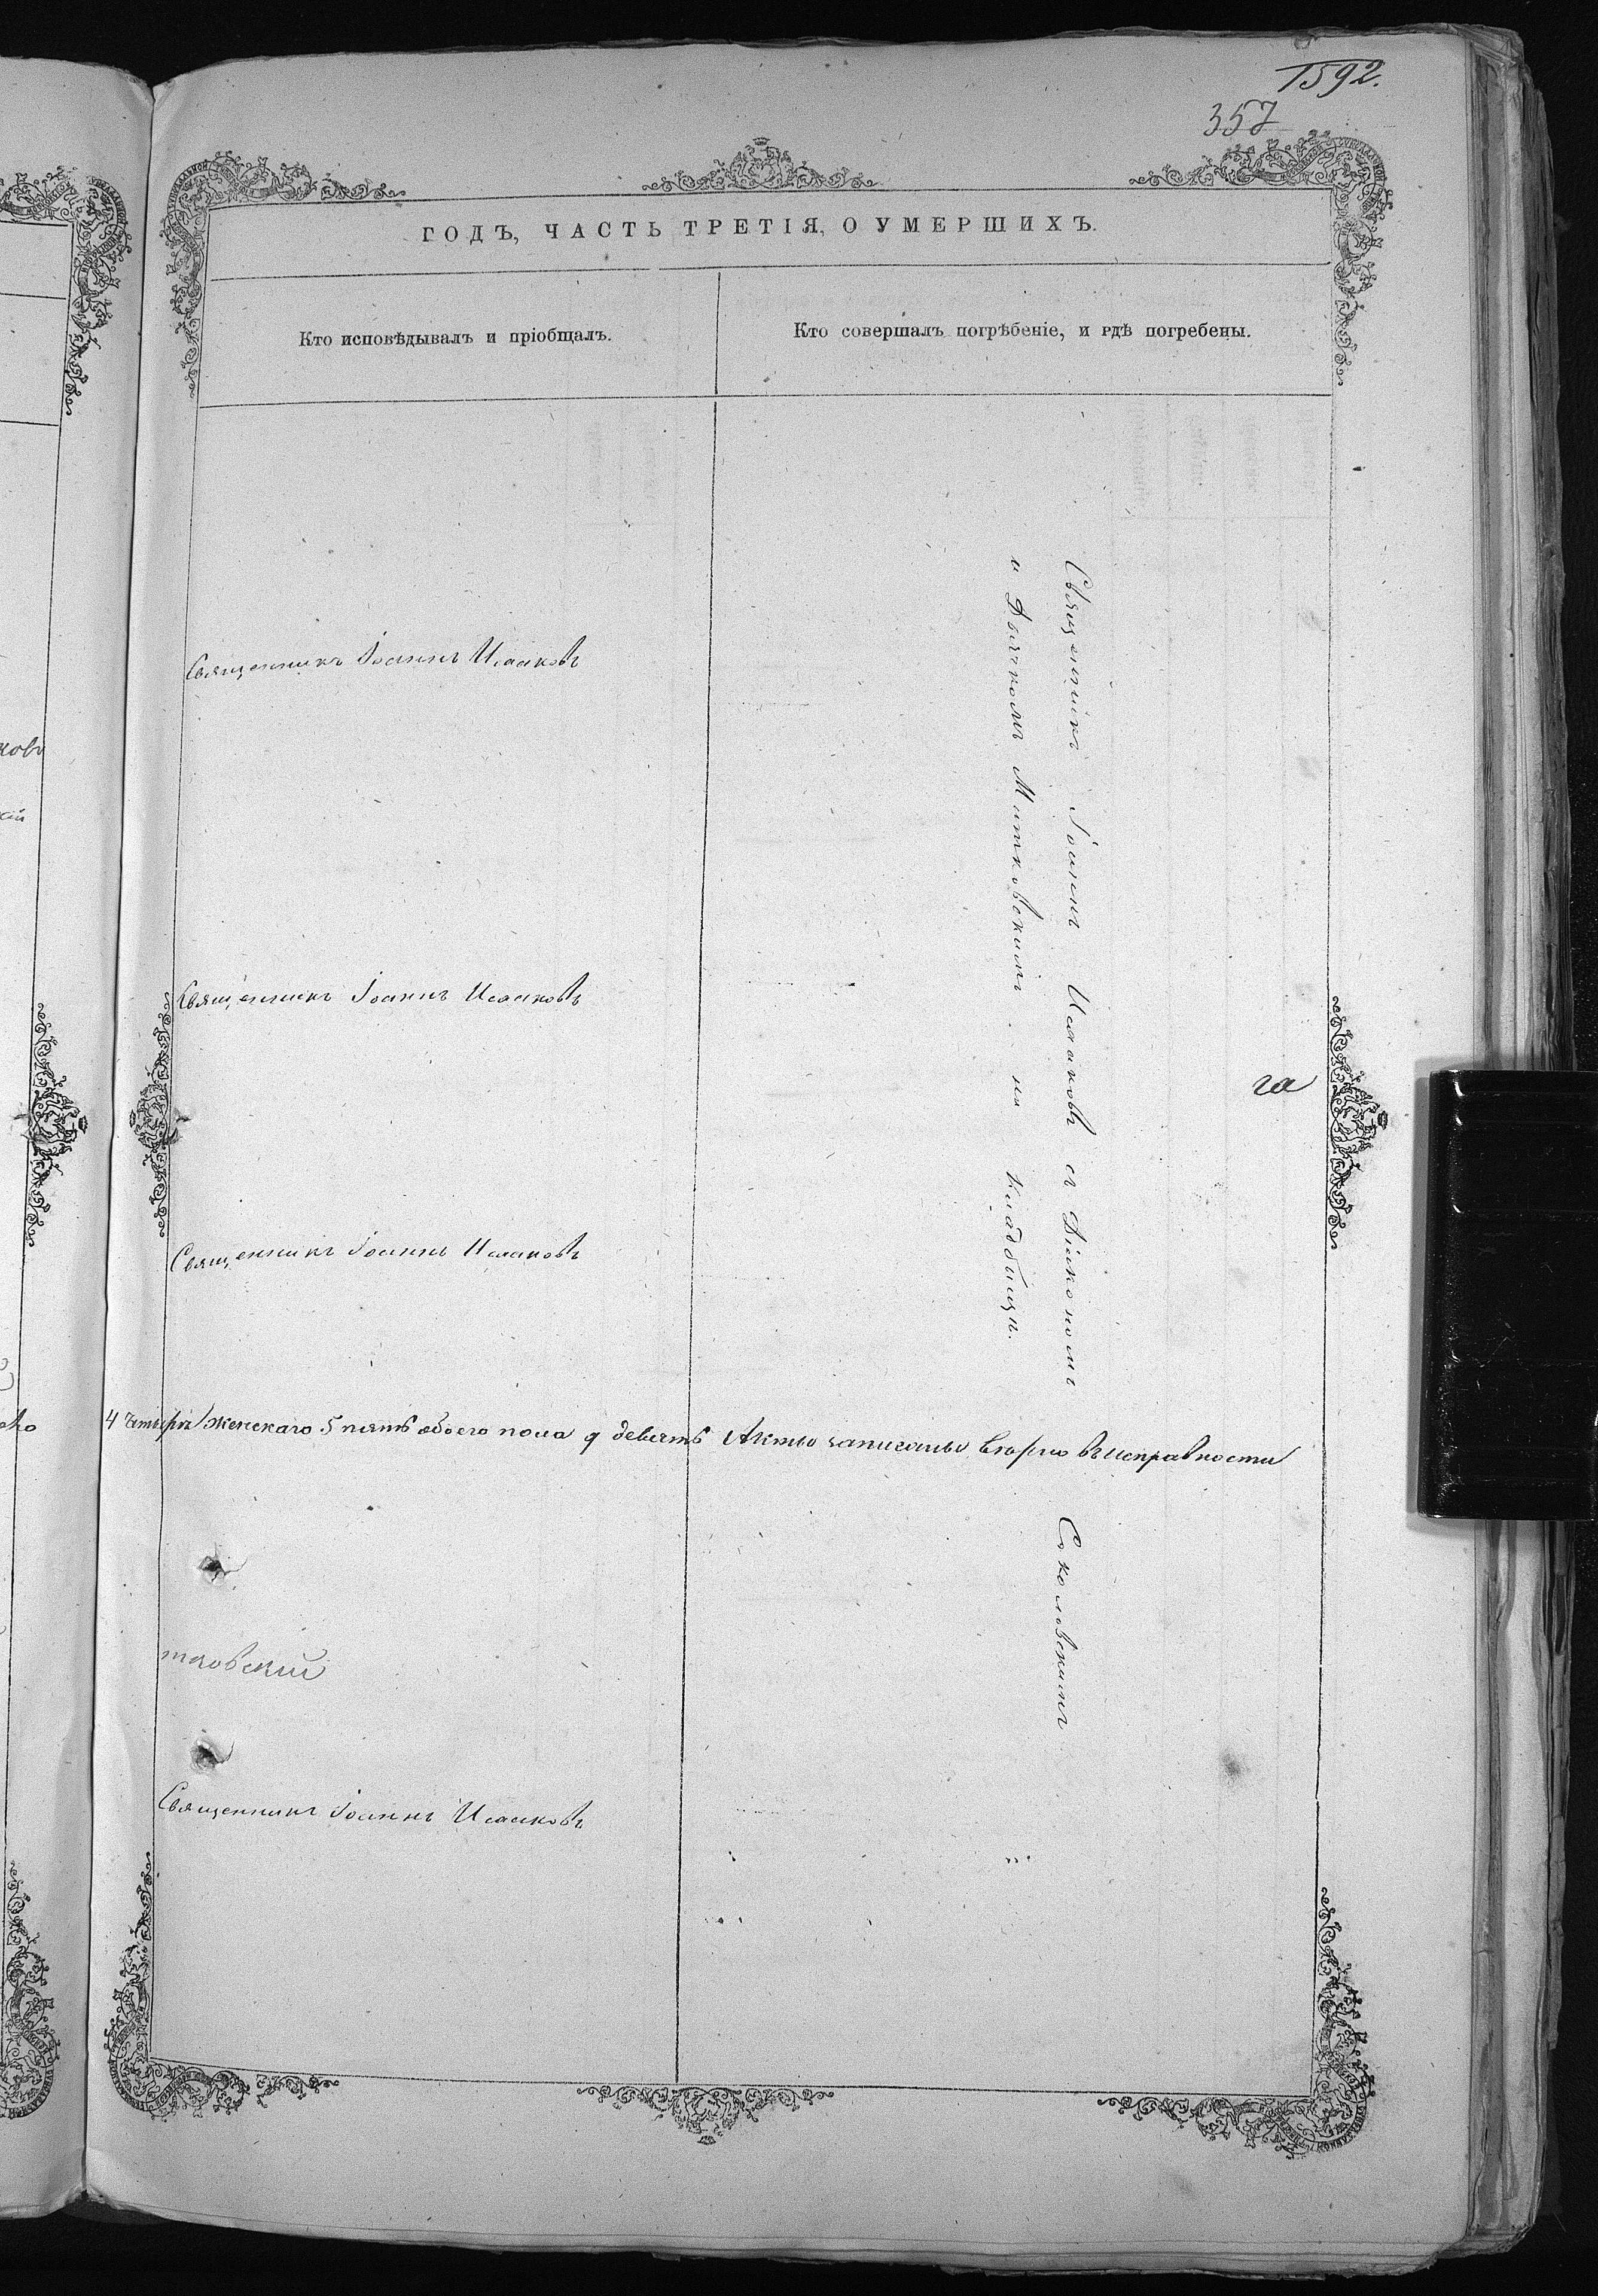 1592.
357
ГОДЪ, ЧАСТЬ ТРЕТІЯ, О УМЕРШИХЪ.
Кто исповѣдывалъ и пріобщалъ.
Кто совершалъ погрѣбеніе, и гдѣ погребены.
Священникъ Іоаннъ Исааковъ
Священникъ Іоаннъ Исааковъ
Священникъ Іоаннъ Исааковъ
Священникъ Іоаннъ Исааковъ съ Діакономъ Соколовскимъ
и Дьячкомъ Митковскимъ на кладбищѣ.
га
4 четыре женскаго 5 пять обоего пола 9 девять Акты записаны вѣрно въ исправности
тковский
Священникъ Іоаннъ Исааковъ